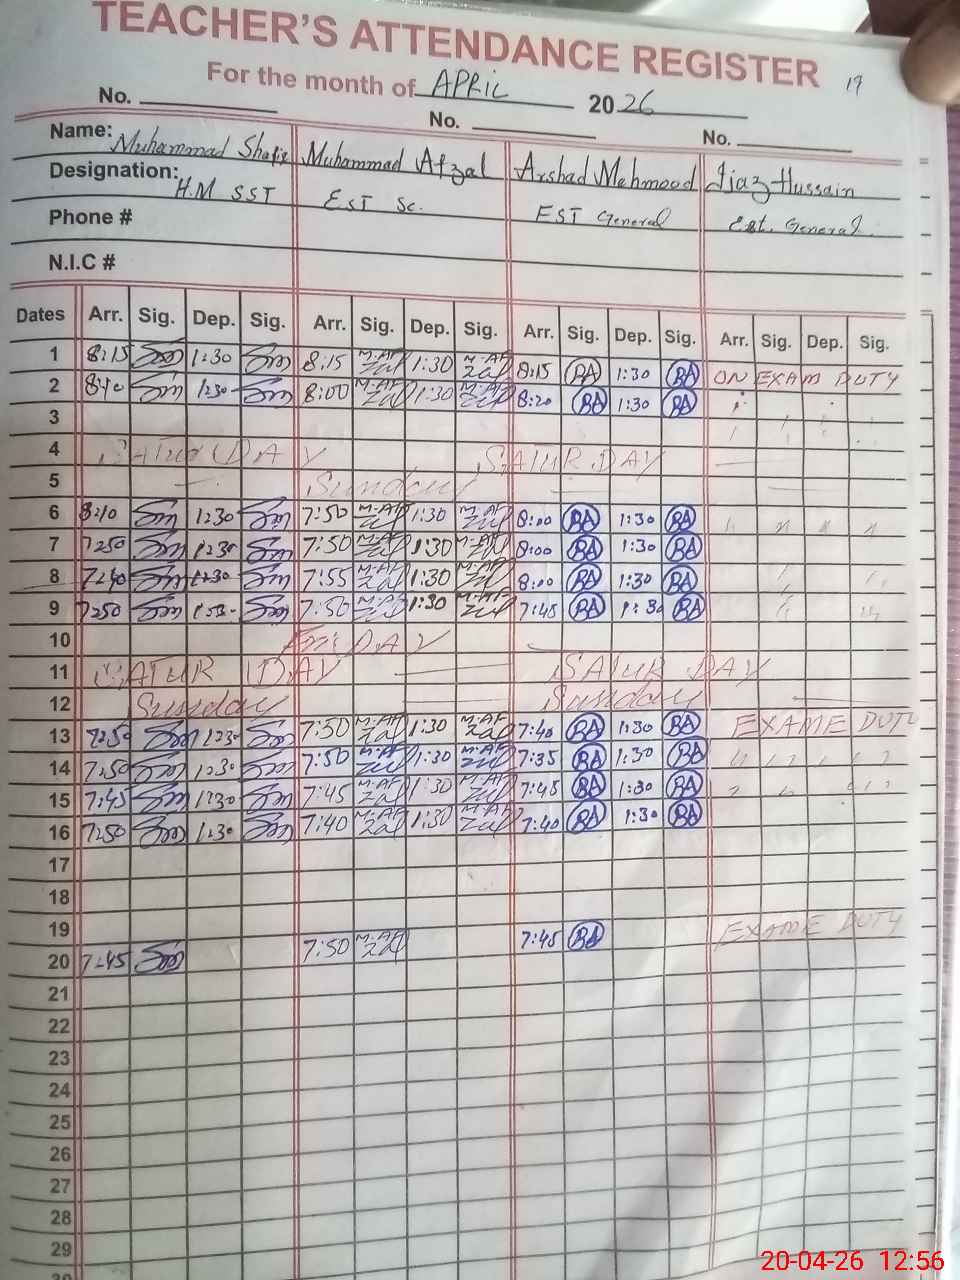 TEACHER'S ATTENDANCE REGISTER
19
For the month of APRIL 2026
No. No. No.
Name: Muhammad Shafiq Muhammad Afzal Arshad Mehmood Ijaz Hussain
Designation: H.M SST EST Sc. EST General Est. General
Phone #
N.I.C #
Dates Arr. Sig. Dep. Sig. Arr. Sig. Dep. Sig. Arr. Sig. Dep. Sig. Arr. Sig. Dep. Sig.
1 8:15 1:30 8:15 M.Af zal 1:30 M.Af zal 8:15 RA 1:30 RA ON EXAM DUTY
2 8:10 1:30 8:00 M.Af zal 1:30 M.Af zal 8:20 RA 1:30 RA
3
4 SATUR DAY SATUR DAY
5 Sunday
6 8:10 1:30 7:50 M.Af zal 1:30 M.Af zal 8:00 RA 1:30 RA
7 7:50 1:30 7:50 M.Af zal 1:30 M.Af zal 8:00 RA 1:30 RA
8 7:40 1:30 7:55 M.Af zal 1:30 M.Af zal 8:00 RA 1:30 RA
9 7:50 1:30 7:50 M.Af zal 1:30 M.Af zal 7:45 RA 1:30 RA
10 Fri DAY
11 SATUR DAY SATUR DAY
12 Sunday Sunday
13 7:50 1:30 7:50 M.Af zal 1:30 M.Af zal 7:40 RA 1:30 RA EXAME DUTY
14 7:50 1:30 7:50 M.Af zal 1:30 M.Af zal 7:35 RA 1:30 RA
15 7:45 1:30 7:45 M.Af zal 1:30 M.Af zal 7:45 RA 1:30 RA
16 7:50 1:30 7:40 M.Af zal 1:30 M.Af zal 7:40 RA 1:30 RA
17
18
19
20 7:45 7:50 M.Af zal 7:45 RA EXAME DUTY
21
22
23
24
25
26
27
28
29
20-04-26 12:56